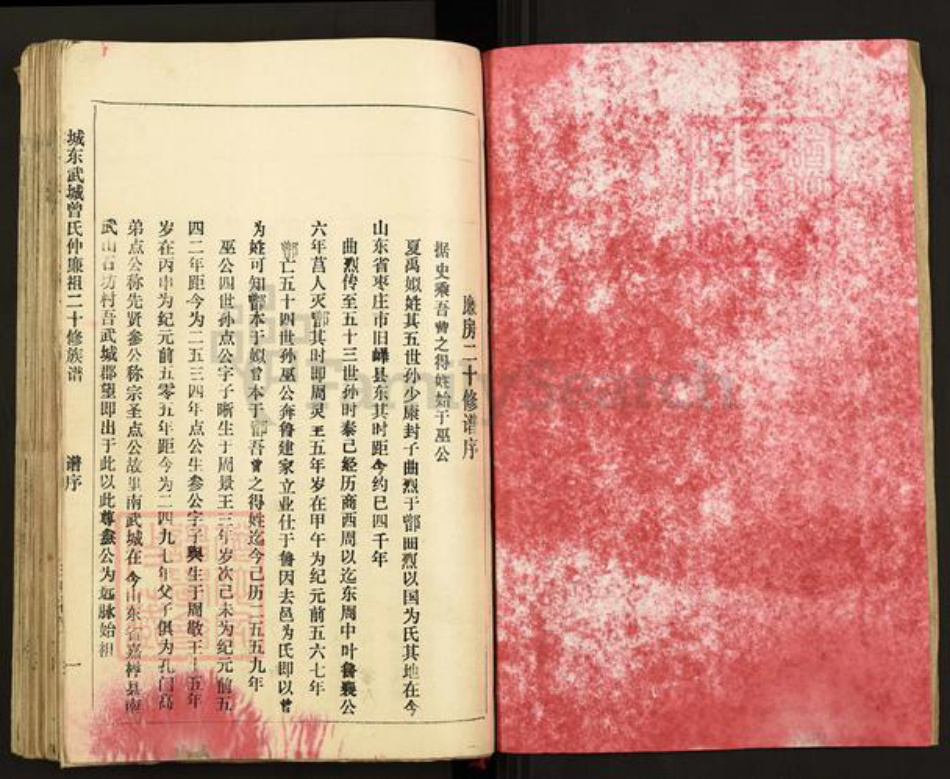 廉房二十修谱序
据史乘吾曾之得姓始于巫公
夏禹姒姓其五世孙少康封子曲烈于鄫曲烈以国为氏其地在今
山东省枣庄市旧峄县东其时距今约巳四千年
曲烈传至五十三世孙时泰己经历商西周以迄东周中叶鲁襄公
六年莒人灭鄫其时即周灵王五年岁在甲午为纪元前五六七年
鄫亡五十四世孙巫公奔鲁建家立业仕于鲁因去邑为氏即以曾
为姓可知鄫本于姒曾本于鄫吾曾之得姓迄今己历二五五九年
巫公四世孙点公字子晰生于周景王三年岁次己未为纪元前五
四二年距今为二五三四年点公生参公字子舆生于周敬王十五年
岁在丙申为纪元前五零五年距今为二四九七年父子俱为孔门高
弟点公称先贤参公称宗圣点公故里南武城在今山东省嘉祥县南
武山石坊村吾武城郡望即出于此以此尊参公为远脉始祖
城东武城曾氏仲廉祖二十修族谱
谱序
一